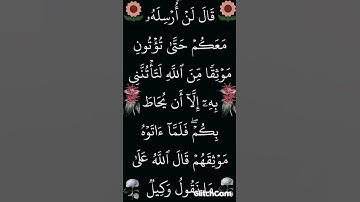 قَالَ لَنْ أُرْسِلَهُۥ
مَعَكُمْ حَتَّىٰ تُؤْتُونِ
مَوْثِقًا مِّنَ ٱللَّهِ لَتَأْتُنَّنِى
بِهِۦٓ إِلَّآ أَن يُحَاطَ
بِكُمْ ۖ فَلَمَّآ ءَاتَوْهُ
مَوْثِقَهُمْ قَالَ ٱللَّهُ عَلَىٰ
مَا نَقُولُ وَكِيلٌ
GlitchCam